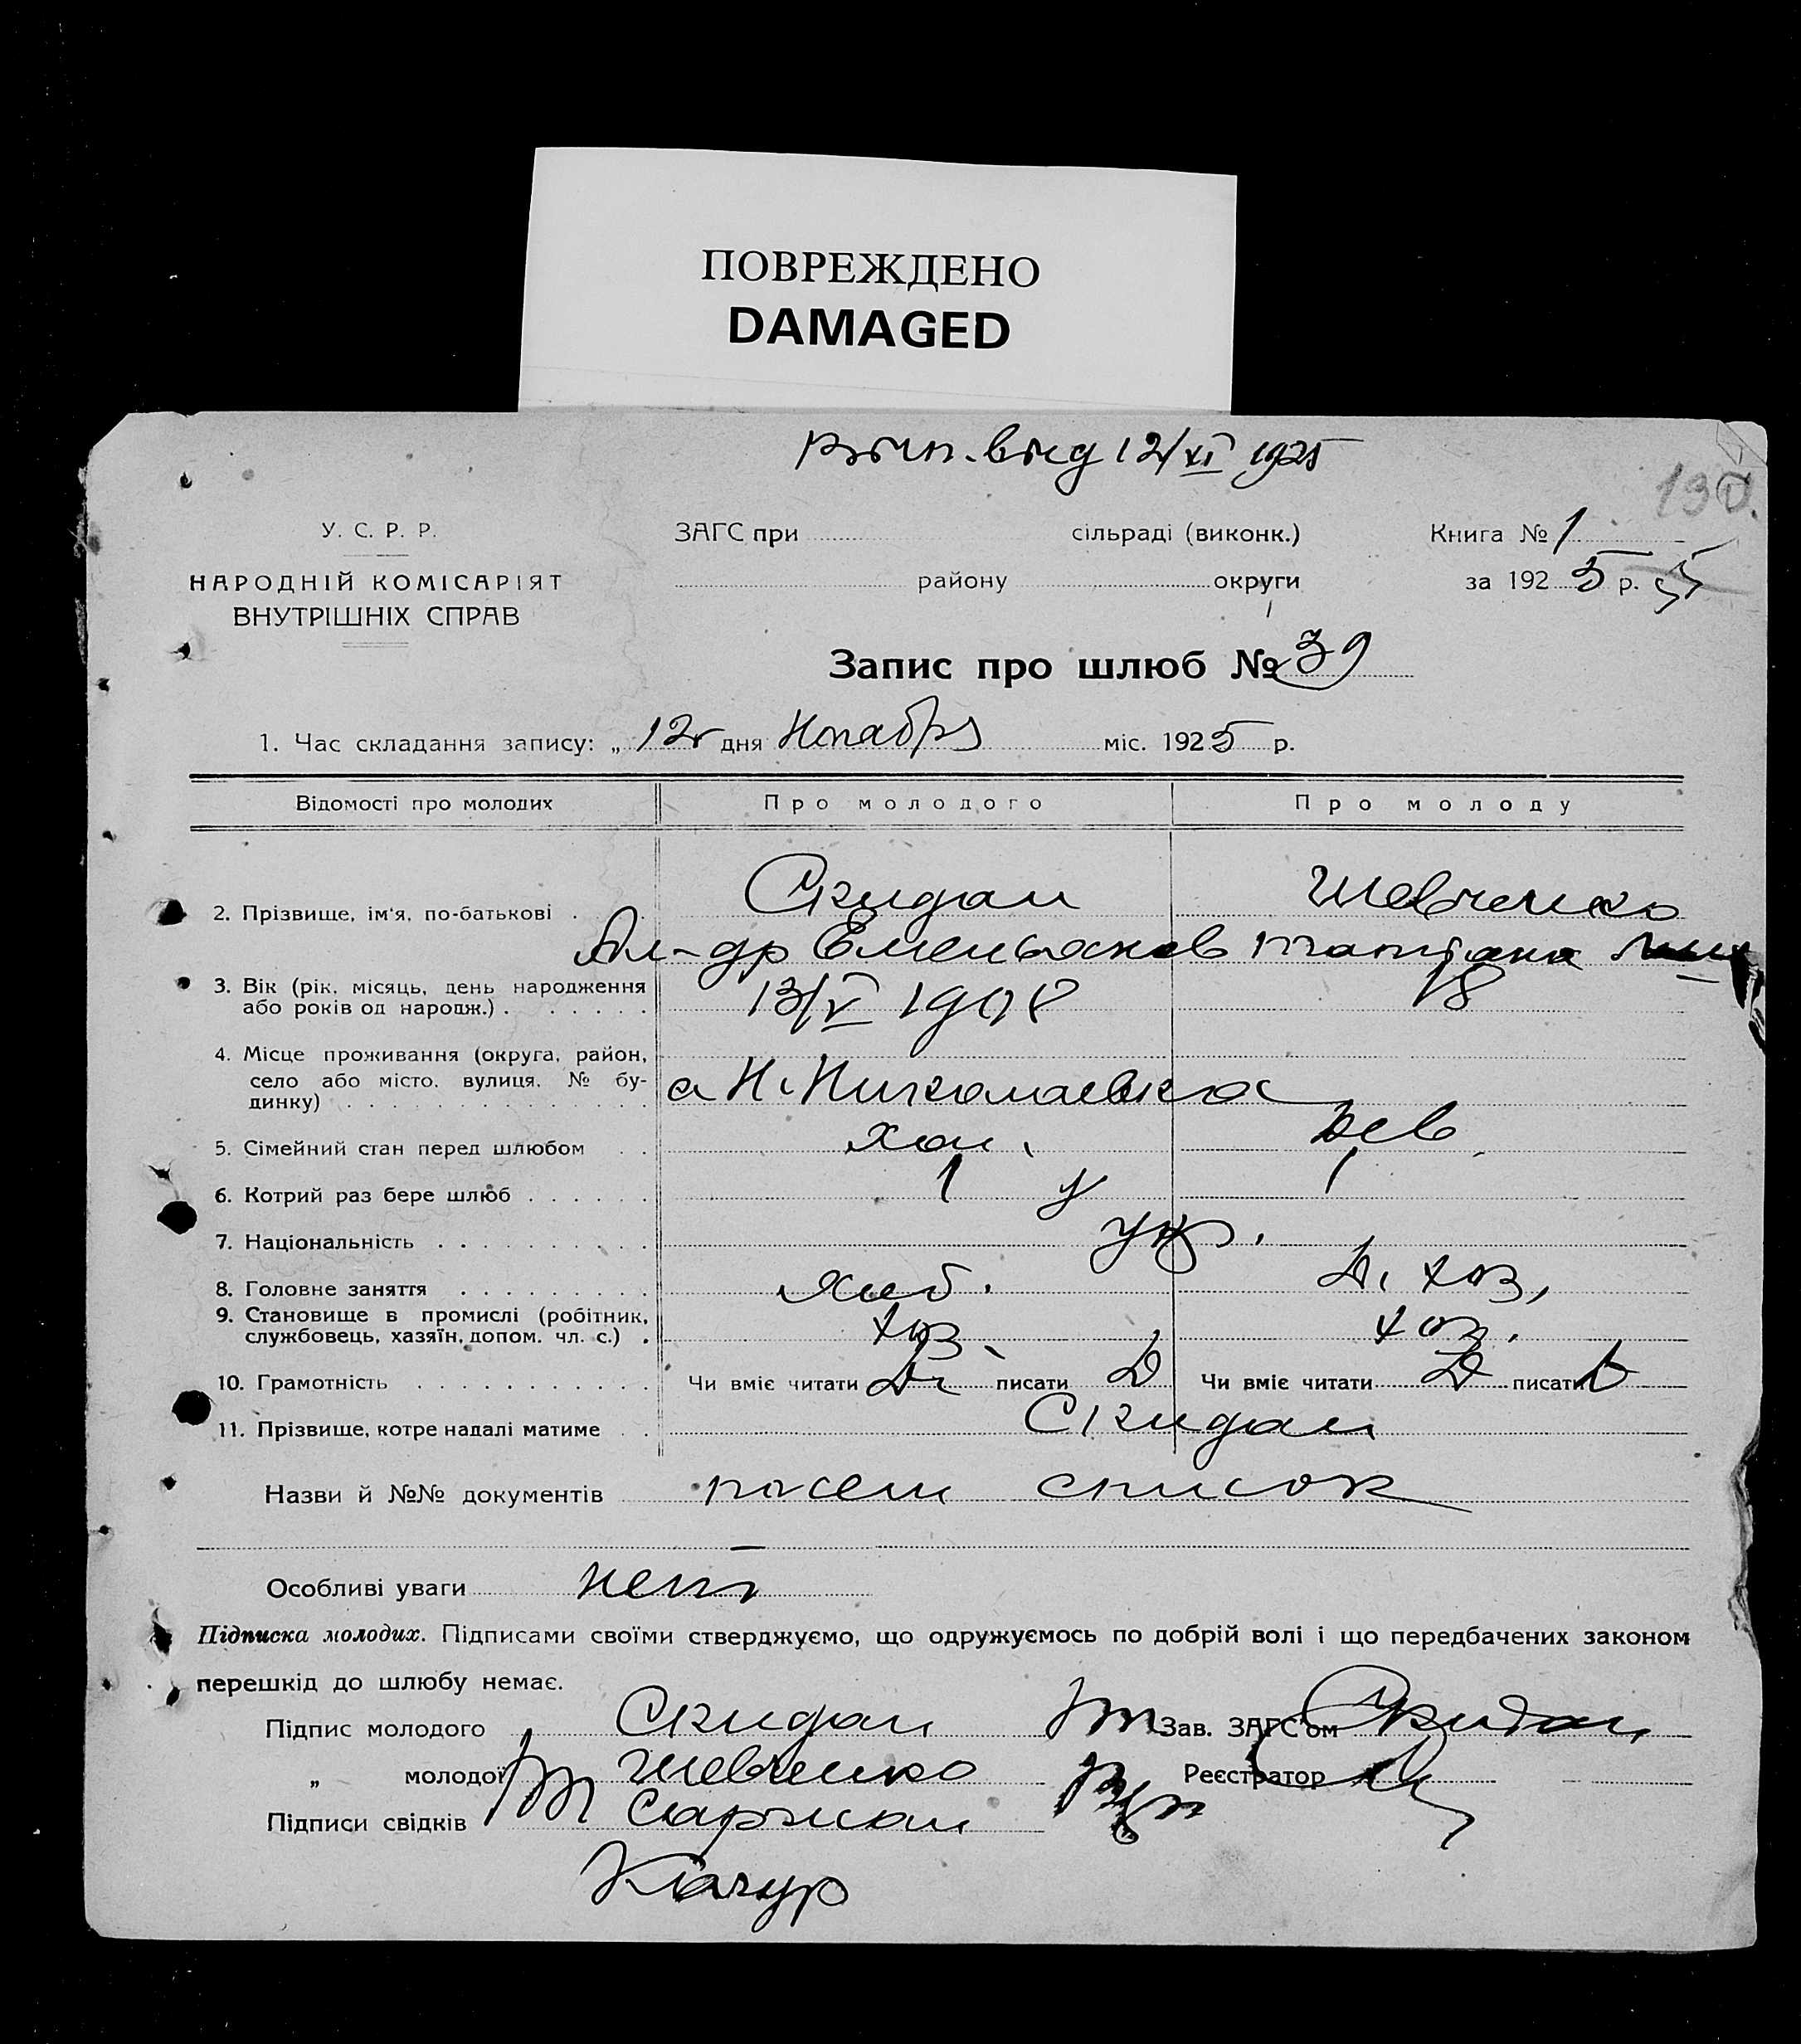 ПОВРЕЖДЕНО
DAMAGED
12/XI 1925
130.
У. С. Р. Р.
НАРОДНІЙ КОМІСАРІЯТ
ВНУТРІШНІХ СПРАВ
ЗАГС при сільраді (виконк.)
району округи
Книга № 1
за 192 5 р. 5
Запис про шлюб № 39
1. Час складання запису: „ 12 дня Ноября міс. 1925 р.
Відомості про молодих Про молодого Про молоду
2. Прізвище, ім'я, по-батькові . Скидан Шевченко
Ал-др Емельянов Татьяна
3. Вік (рік, місяць, день народження
або років од народж.) . . . . . . 13/V 1908 18
4. Місце проживання (округа, район,
село або місто, вулиця, № бу-
динку) . . . . . . . . . . . . . . Н. Николаевка
5. Сімейний стан перед шлюбом . . хол. дев.
6. Котрий раз бере шлюб . . . . . . 1 1
7. Національність . . . . . . . . . . укр.
8. Головне заняття . . . . . . . . . хлеб. д. хоз.
9. Становище в промислі (робітник,
службовець, хазяїн, допом. чл. с.) . хоз. хоз.
10. Грамотність . . . . . . . . . . . Чи вміє читати Д. писати Д Чи вміє читати Д писати Д
11. Прізвище, котре надалі матиме . . Скидан
Назви й №№ документів посем список
Особливі уваги нет
Підписка молодих. Підписами своїми стверджуємо, що одружуємось по добрій волі і що передбачених законом
перешкід до шлюбу немає.
Підпис молодого Скидан Зав. ЗАГС'ом Скидан
„ молодої Шевченко Реєстратор
Підписи свідків
Качур